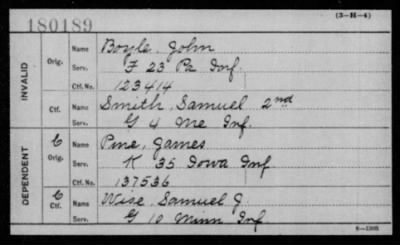 180189
(3-H-4)
INVALID
Orig.
Name Boyle, John
Serv. F 23 Pa Inf.
Ctf. No. 123414
Ctf.
Name Smith, Samuel 2nd
Serv. G 4 Me Inf.
DEPENDENT
C
Orig.
Name Pine, James
Serv. K 35 Iowa Inf
Ctf. No. 137536
C
Ctf.
Name Wise, Samuel J.
Serv. G 10 Minn Inf.